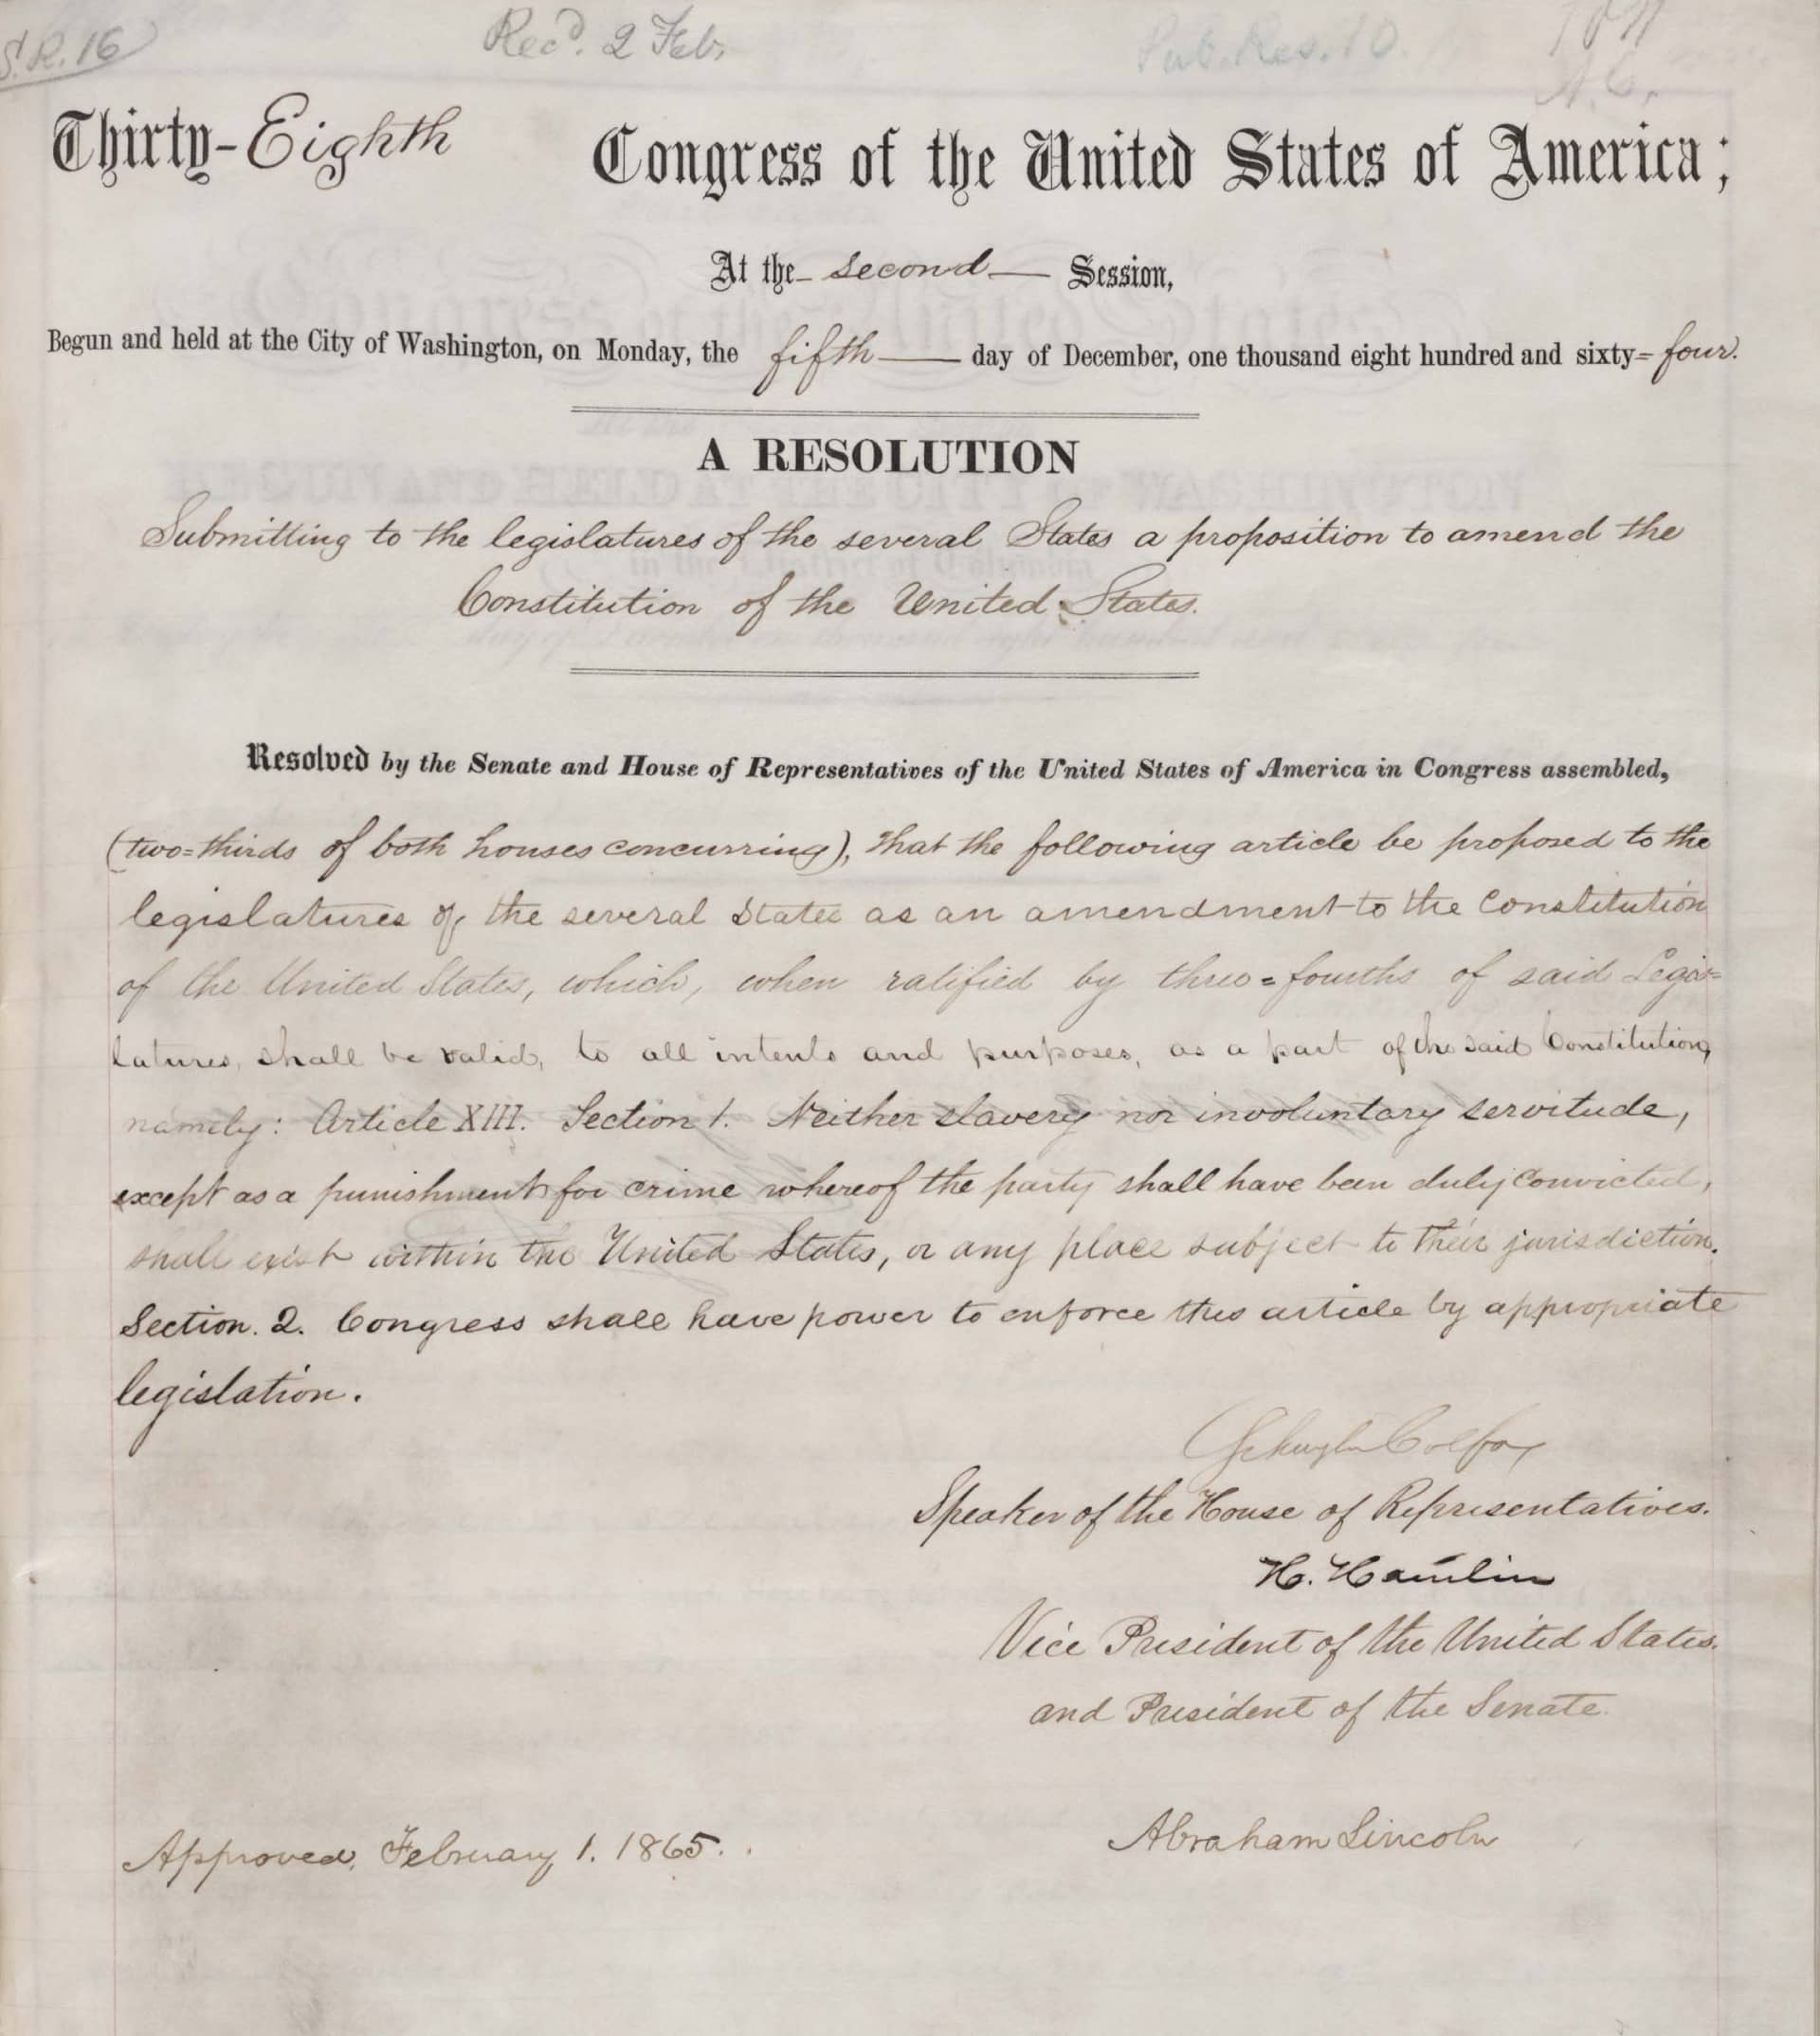 S.R. 16
Recd. 2 Feb.
Pub. Res. 10.
Thirty-Eighth Congress of the United States of America;
At the second Session,
Begun and held at the City of Washington, on Monday, the fifth day of December, one thousand eight hundred and sixty=four.
A RESOLUTION
Submitting to the legislatures of the several States a proposition to amend the
Constitution of the United States.
Resolved by the Senate and House of Representatives of the United States of America in Congress assembled,
(two=thirds of both houses concurring), that the following article be proposed to the
legislatures of the several States as an amendment to the Constitution
of the United States, which, when ratified by three=fourths of said Legis=
latures, shall be valid, to all intents and purposes, as a part of the said Constitution,
namely: Article XIII. Section 1. Neither slavery nor involuntary servitude,
except as a punishment for crime whereof the party shall have been duly convicted,
shall exist within the United States, or any place subject to their jurisdiction.
Section. 2. Congress shall have power to enforce this article by appropriate
legislation.
Schuyler Colfax
Speaker of the House of Representatives.
H. Hamlin
Vice President of the United States.
and President of the Senate.
Approved, February 1. 1865.
Abraham Lincoln